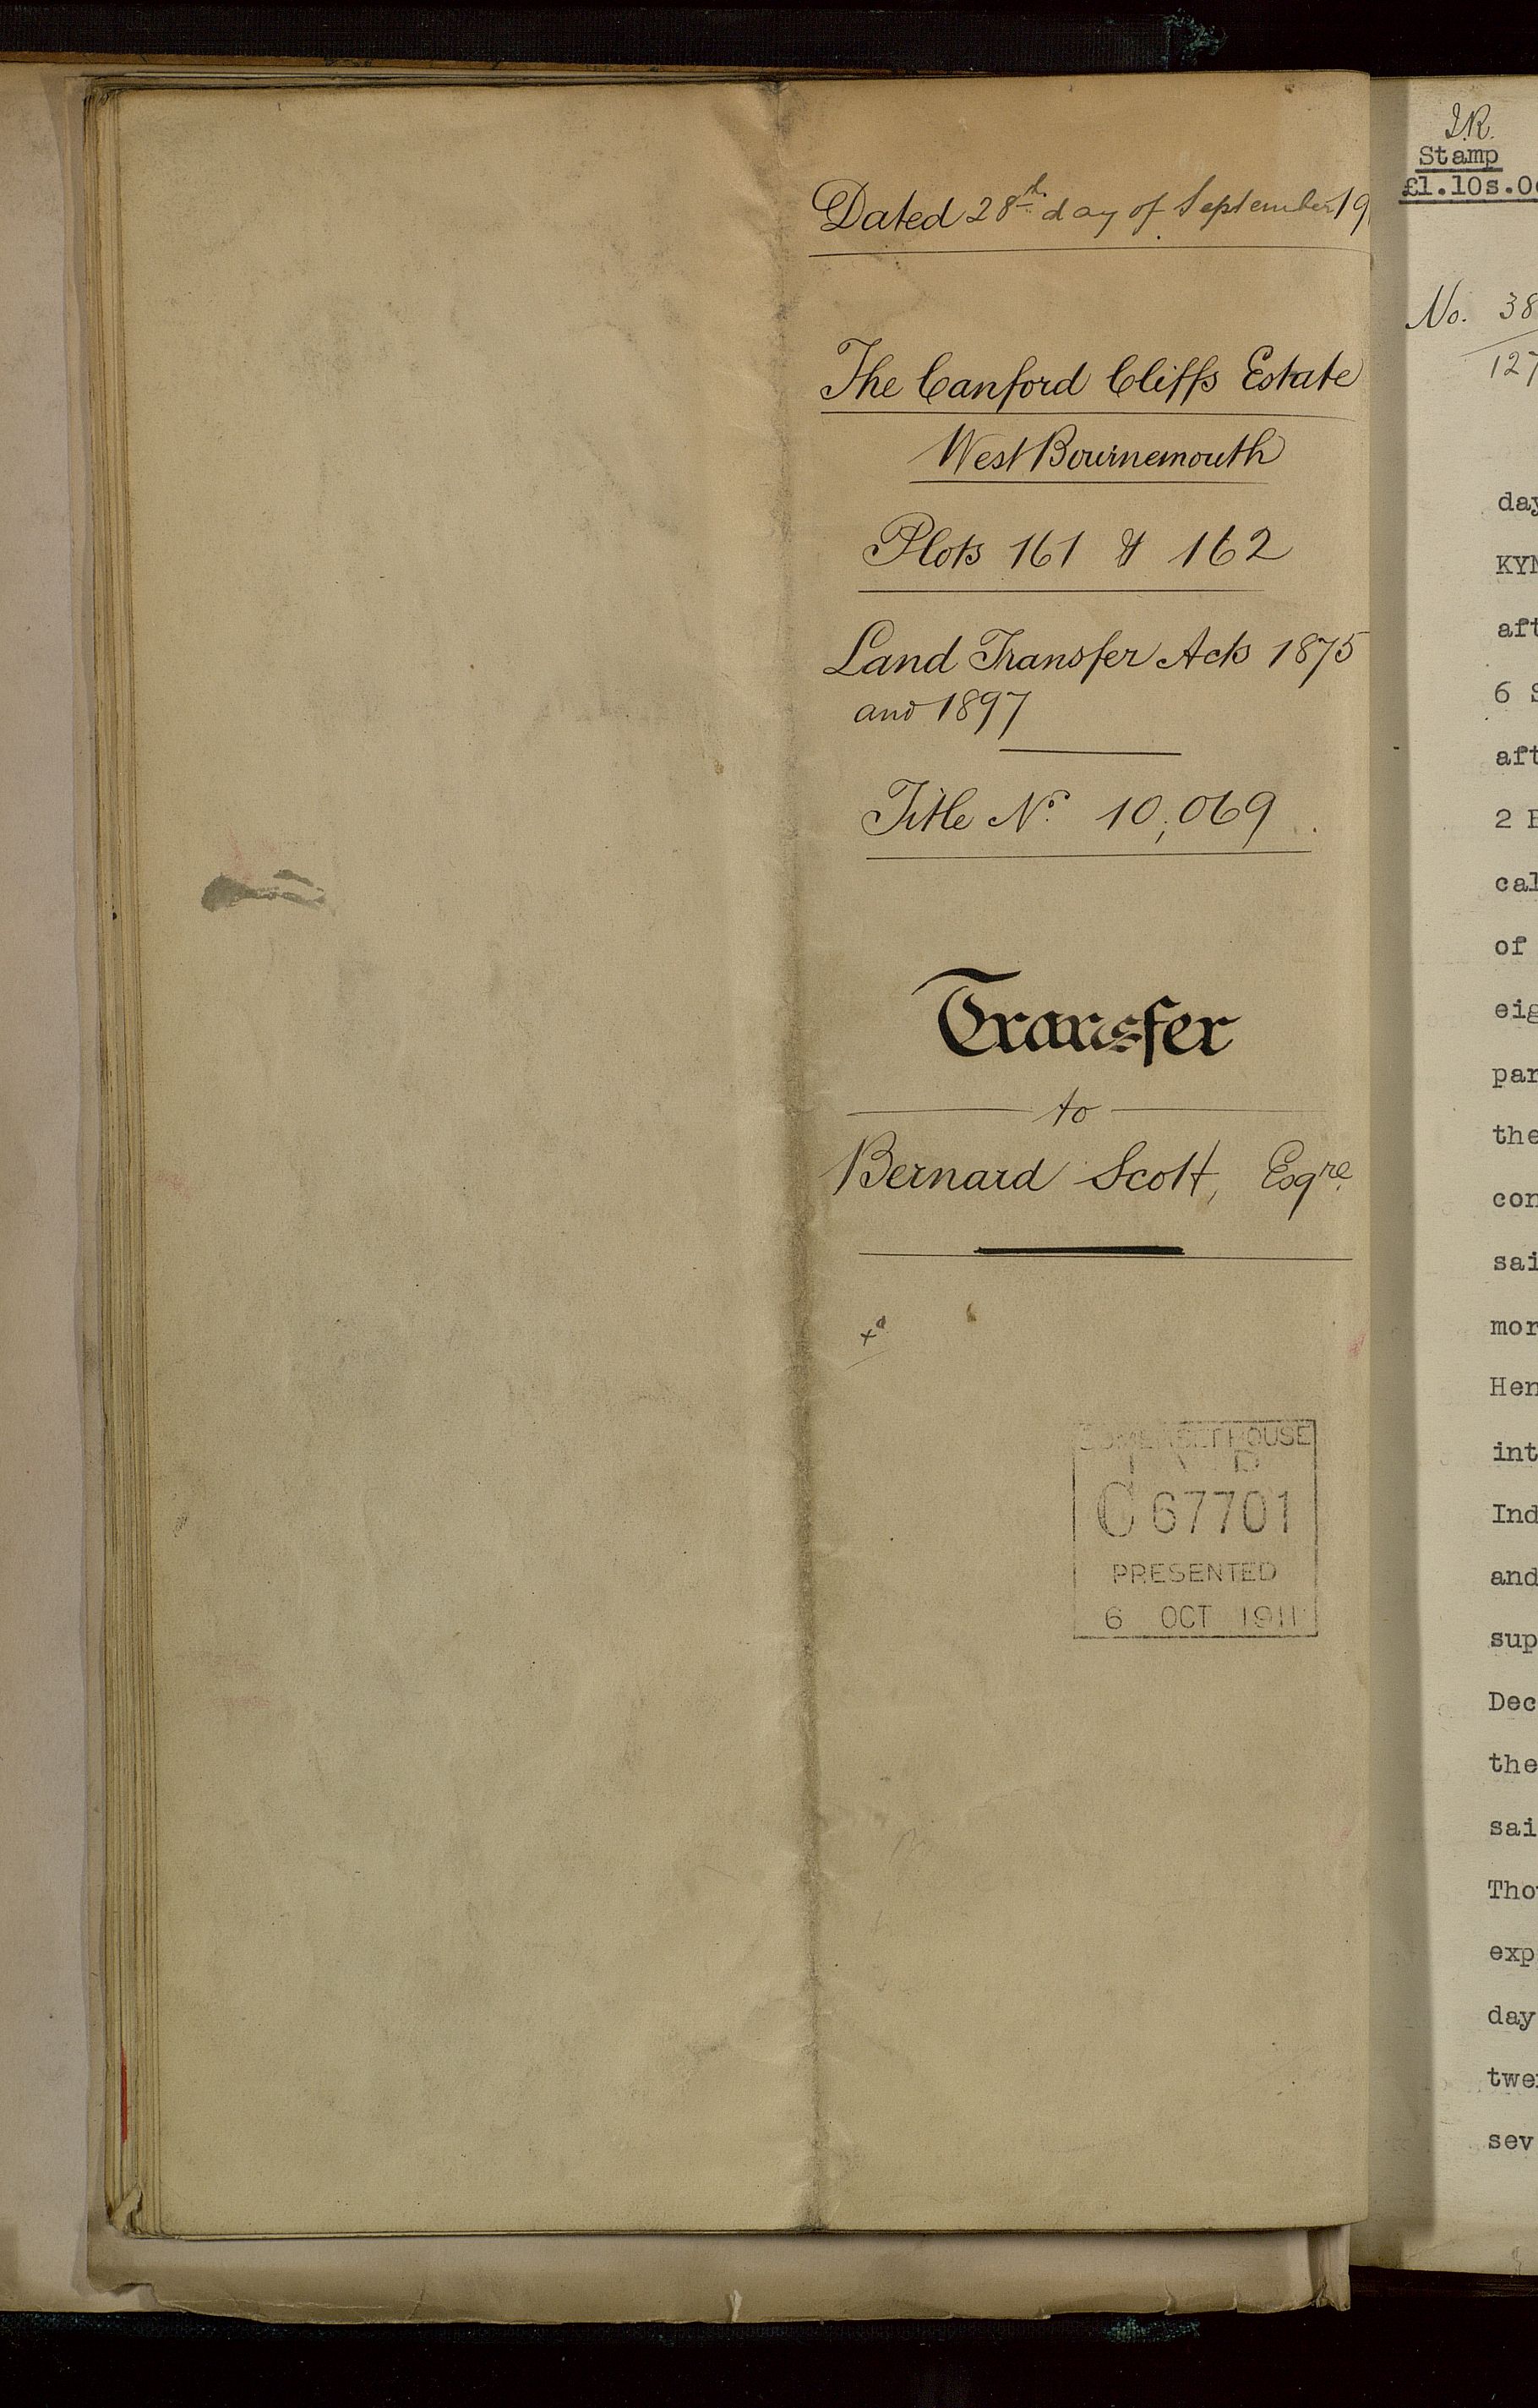 Dated 28th day of September 19
The Canford Cliffs Estate
West Bournemouth
Plots 161 & 162
Land Transfer Acts 1875
and 1897
Title No. 10,069
Transfer
to
Bernard Scott, Esqre.
SOMERSET HOUSE
C 67701
PRESENTED
6 OCT 1911
I.R.
Stamp
£1.10s.0
No. 38
127
day
KYN
aft
6 S
aft
2
cal
of
eig
par
the
con
sai
mor
Hen
int
Ind
and
sup
Dec
the
sai
Tho
exp
day
twe
sev